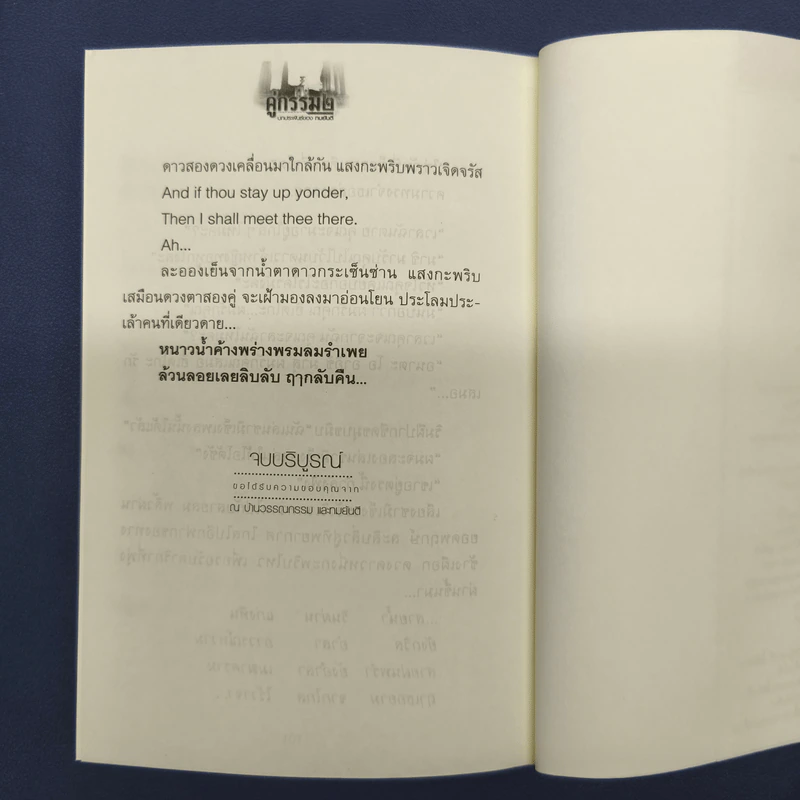 คู่กรรม ๒
บทประพันธ์ของ ทมยันตี
ดาวสองดวงเคลื่อนมาใกล้กัน แสงกะพริบพราวเจิดจรัส
And if thou stay up yonder,
Then I shall meet thee there.
Ah...
ละอองเย็นจากน้ำตาดาวกระเซ็นซ่าน แสงกะพริบ
เสมือนดวงตาสองคู่ จะเฝ้ามองลงมาอ่อนโยน ประโลมประ-
เล้าคนที่เดียวดาย...
หนาวน้ำค้างพร่างพรมลมรำเพย
ล้วนลอยเลยลิบลับ ฤๅกลับคืน...
จบบริบูรณ์
ขอได้รับความขอบคุณจาก
ณ บ้านวรรณกรรม และทมยันตี